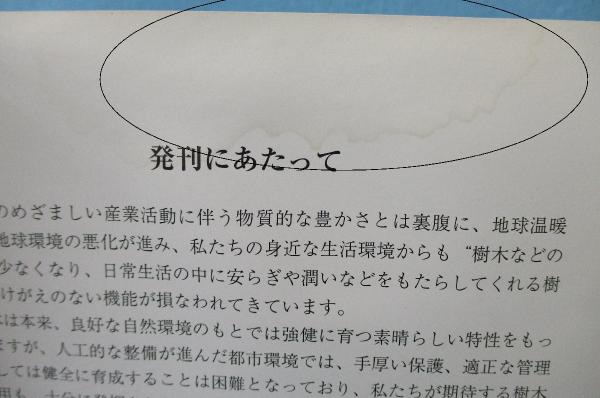 発刊にあたって
のめざましい産業活動に伴う物質的な豊かさとは裏腹に、地球温暖
地球環境の悪化が進み、私たちの身近な生活環境からも“樹木などの
少なくなり、日常生活の中に安らぎや潤いなどをもたらしてくれる樹
けがえのない機能が損なわれてきています。
は本来、良好な自然環境のもとでは強健に育つ素晴らしい特性をもっ
ますが、人工的な整備が進んだ都市環境では、手厚い保護、適正な管理
しては健全に育成することは困難となっており、私たちが期待する樹木